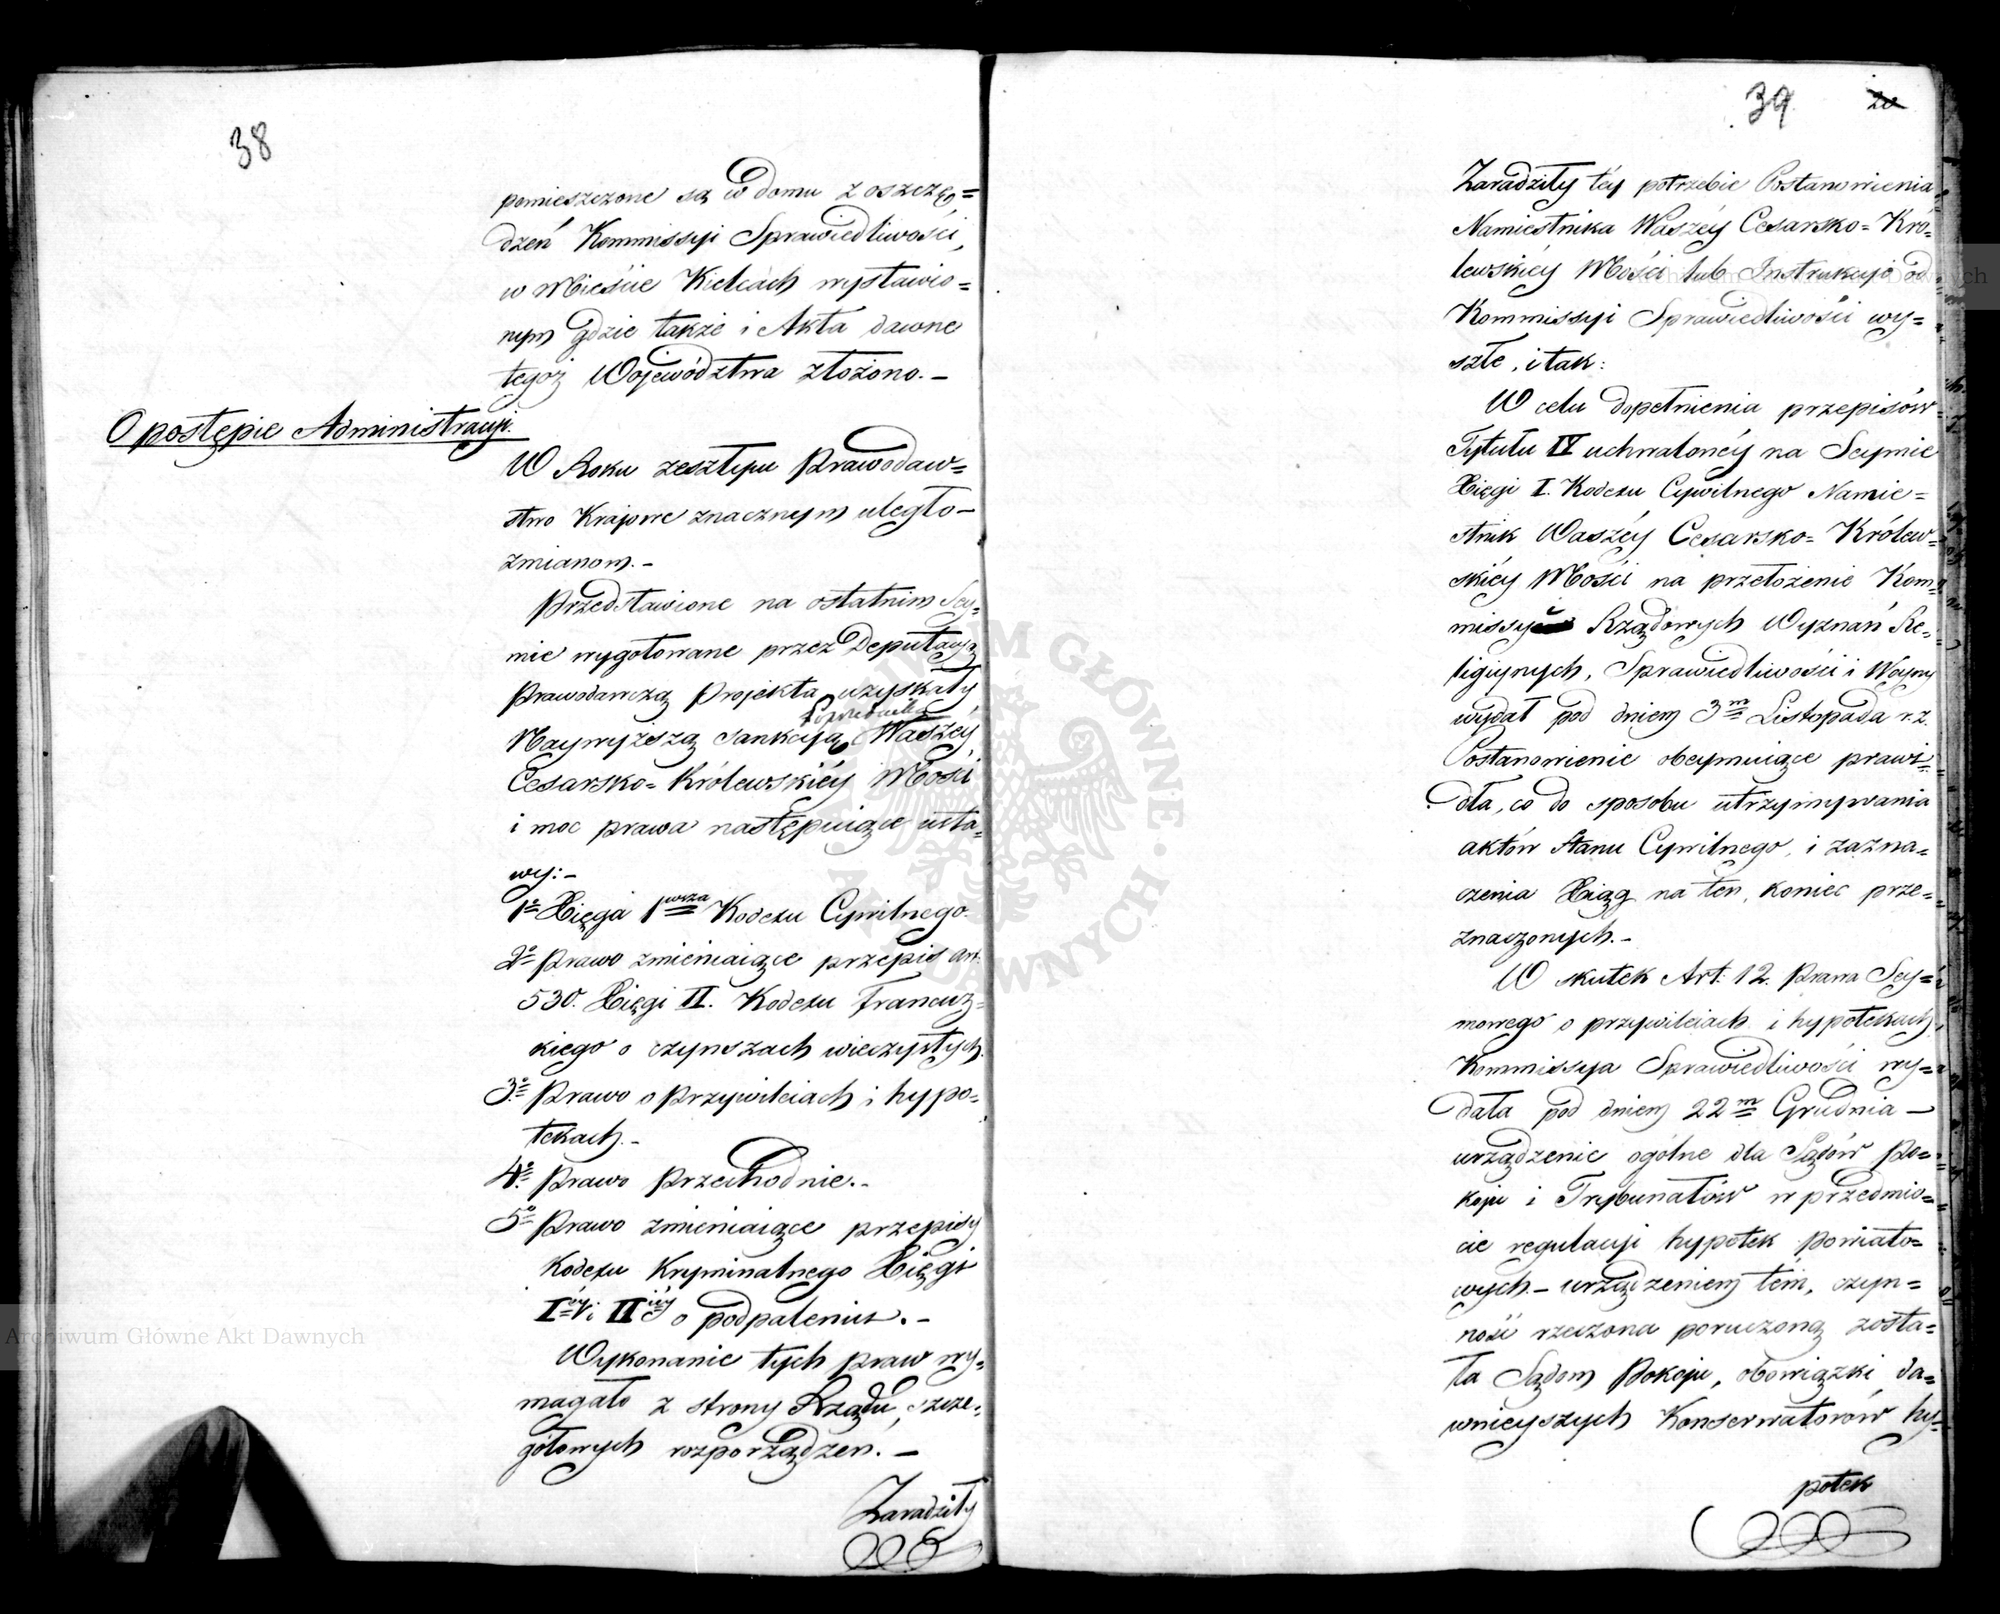 38
pomieszczone są w domu z oszczę=
dzeń Kommissyi Sprawiedliwości,
w Mieście Kielcach wystawio=
nym gdzie także i Akta dawne
tegoż Województwa złożono. –
O postępie Administracyi.
W Roku zeszłym Prawodaw=
stwo Krajowe znacznym uległo –
zmianom. –
Przedstawione na ostatnim Sey=
mie wygotowane przez Deputacyą
Prawodawczą Projekta uzyskały
Poprzednika
Naywyższą sankcyją Waszéy
Cesarsko=Królewskiéy Mości
i moc prawa następuiące usta=
wy: –
1o Xięga 1wsza Kodexu Cywilnego.
2o Prawo zmieniaiące przepis art.
530. Xięgi II. Kodexu Francuz=
kiego o czynszach wieczystych.
3o Prawo o Przywileiach i hypo=
tekach. –
4o Prawo Przechodnie. –
5o Prawo zmieniaiące przepisy
Kodexu Kryminalnego Xięgi
Iéy i IIiéy o podpaleniu. –
Wykonanie tych praw wy=
magało z strony Rządu, szcze=
gółowych rozporządzeń. –
Zaradziły
39 20
Zaradziły téy potrzebie Postanowienia
Namiestnika Waszéy Cesarsko=Kró=
lewskiéy Mości lub Instrukcye od
Kommissyi Sprawiedliwości wy=
szłe, i tak:
W celu dopełnienia przepisów
Tytułu IV uchwalonéy na Seymie
Xięgi I. Kodexu Cywilnego Namie=
stnik Waszéy Cesarsko=Królew=
skiéy Mości na przełożenie Kom=
missyi Rządowych Wyznań Re=
ligiynych, Sprawiedliwości i Woyny
wydał pod dniem 3m Listopada r. z.
Postanowienie obeymuiące prawi=
dła, co do sposobu utrzymywania
aktów Stanu Cywilnego, i zazna=
czenia Xiąg na ten, koniec prze=
znaczonych. –
W skutek Art. 12. Prawa Sey=
mowego o przywileiach i hypotekach,
Kommissya Sprawiedliwości wy=
dała pod dniem 22m Grudnia –
urządzenie ogólne dla Sądów Po=
koju i Trybunałów w przedmio=
cie regulacyi hypotek powiato=
wych – urządzeniem tém, czyn=
ność rzeczona poruczoną zosta=
ła Sądom Pokoju, obowiązki da=
wnieyszych Konserwatorów hy=
potek
Archiwum Główne Akt Dawnych
Archiwum Główne Akt Dawnych
ARCHIWUM GŁÓWNE AKT DAWNYCH